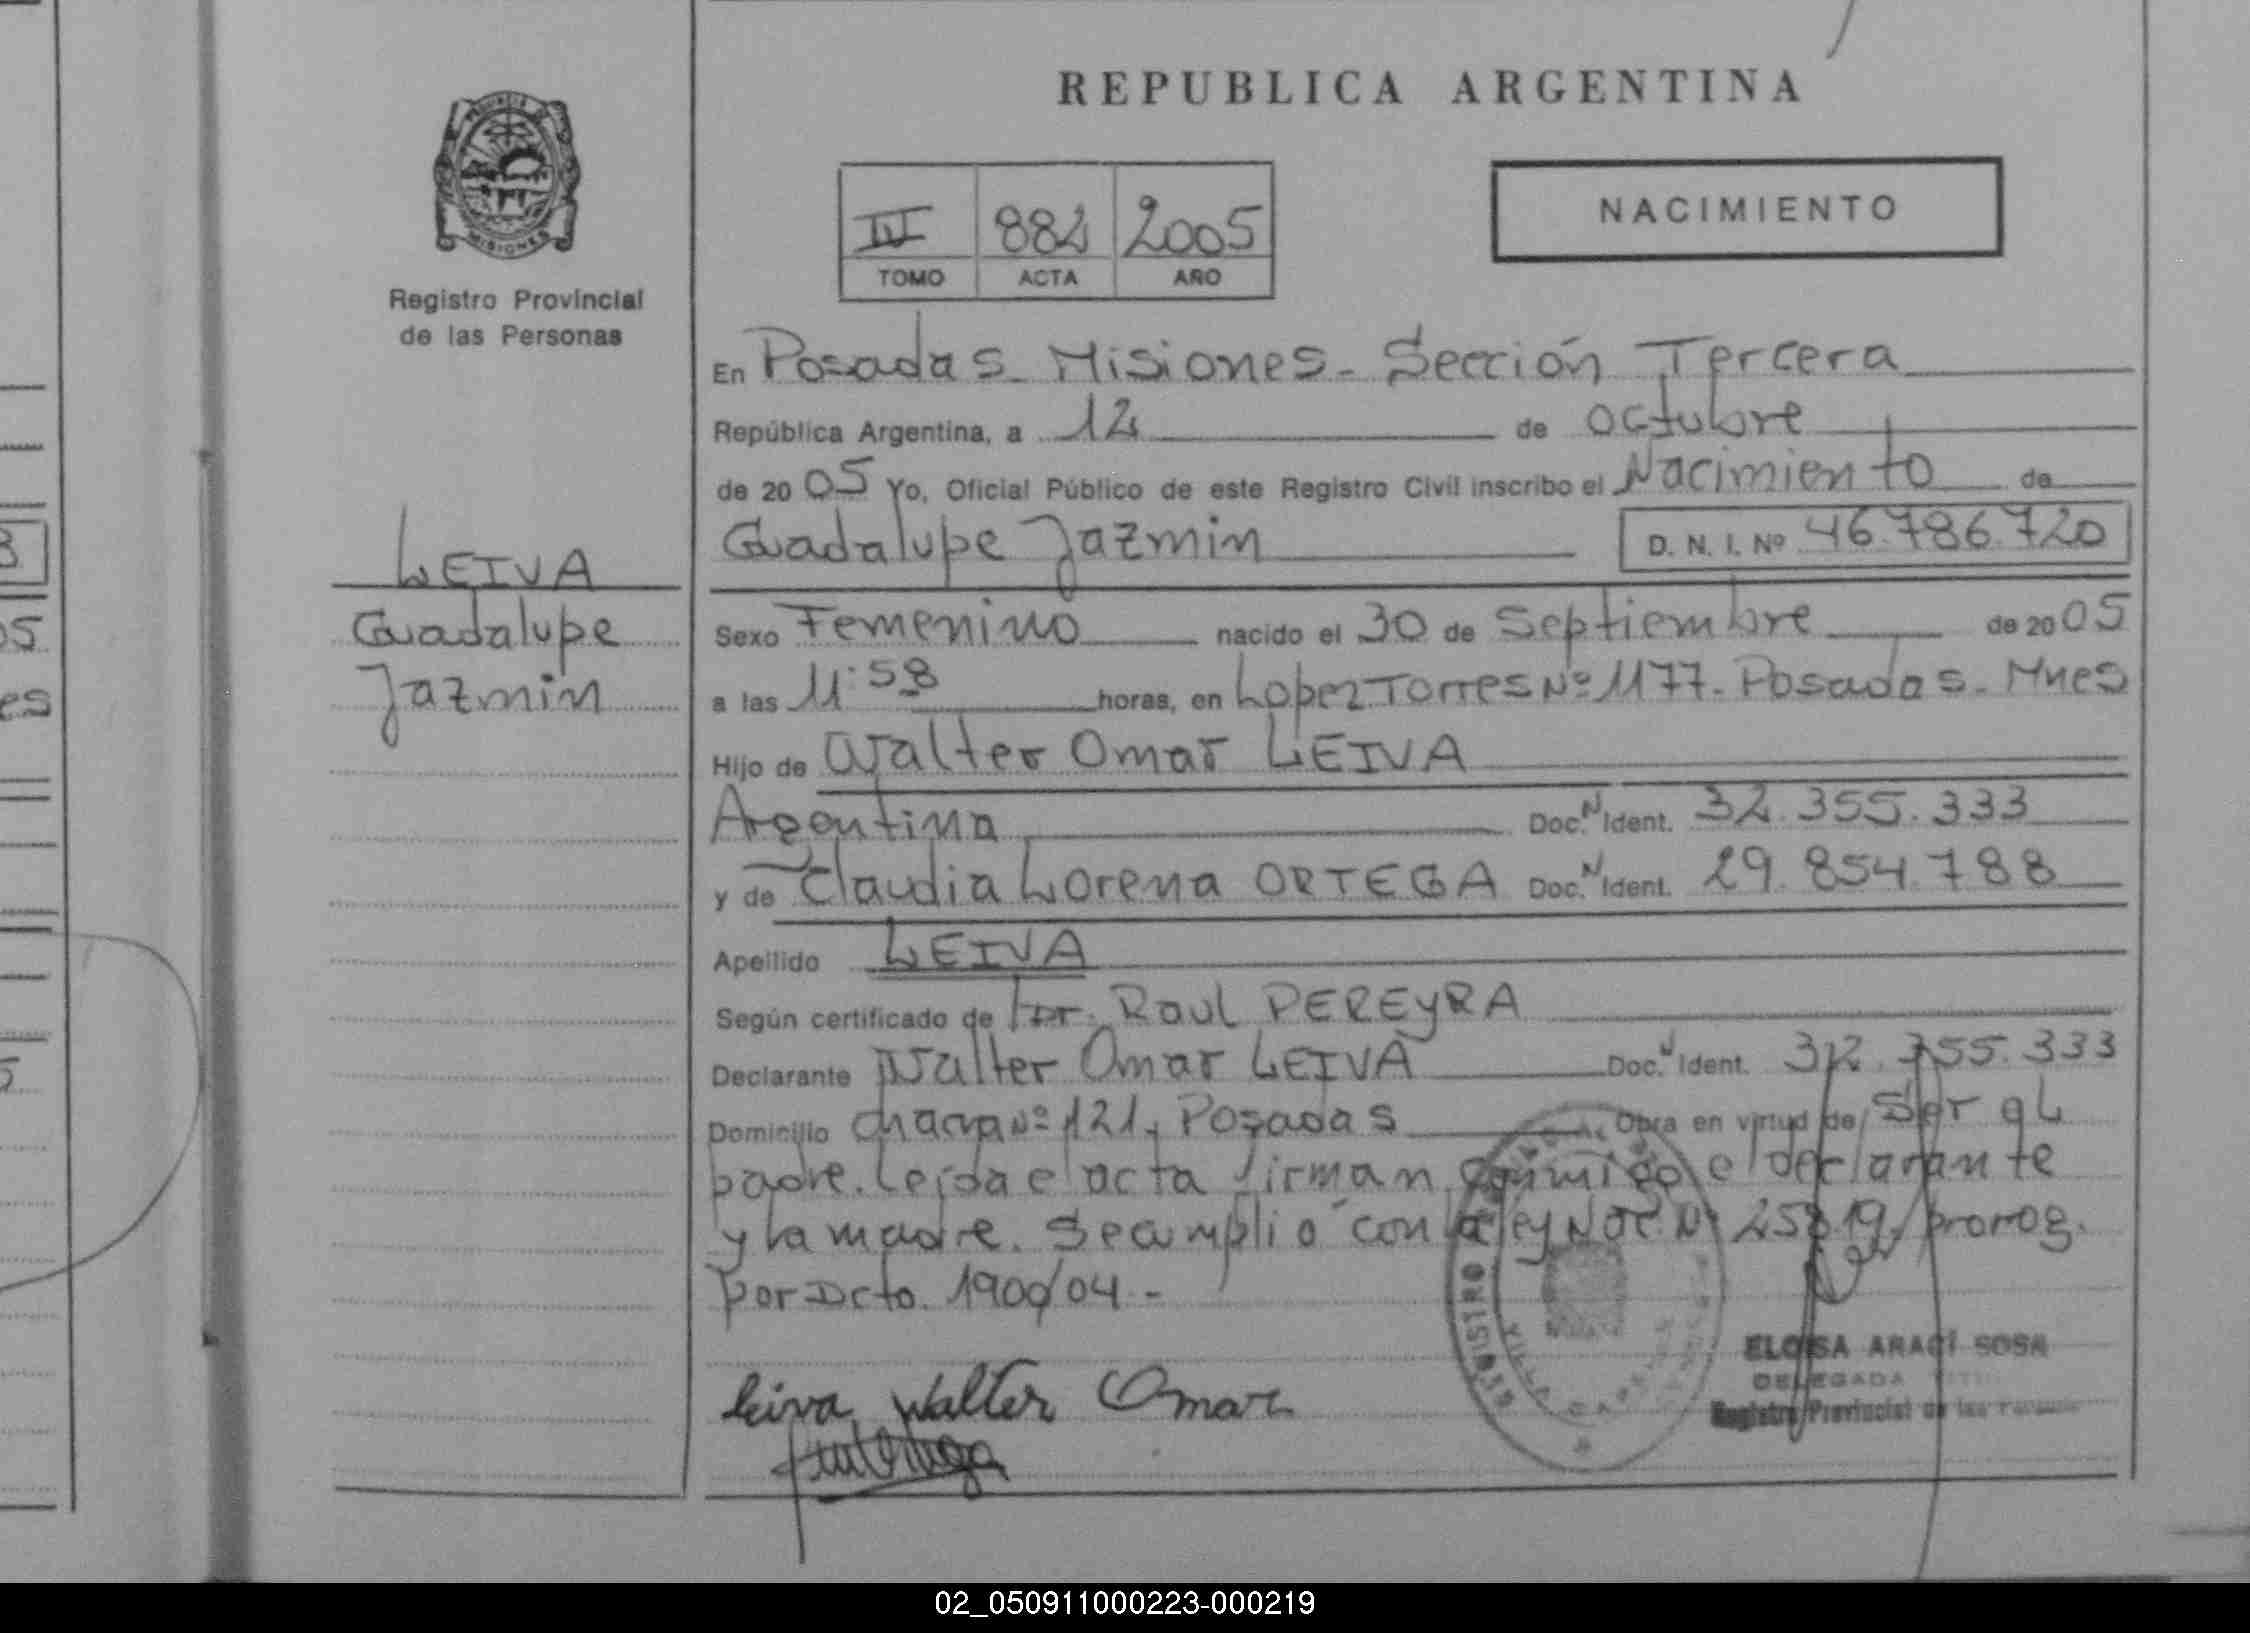 REPUBLICA ARGENTINA
MISIONES
Registro Provincial
de las Personas
IV 882 2005
TOMO ACTA AÑO
NACIMIENTO
En Posadas Misiones - Sección Tercera
República Argentina, a 12 de octubre
de 2005 Yo, Oficial Público de este Registro Civil inscribo el Nacimiento de
Guadalupe Jazmin D. N. I. Nº 46.786.720
LEIVA
Guadalupe
Jazmin
Sexo Femenino nacido el 30 de Septiembre de 2005
a las 11:58 horas, en Lopez Torres Nº 1177. Posadas. Mnes
Hijo de Walter Omar LEIVA
Argentina Doc. N Ident. 32.355.333
y de Claudia Lorena ORTEGA Doc. N Ident. 29.854.788
Apellido LEIVA
Según certificado de Dr. Raul PEREYRA
Declarante Walter Omar LEIVA Doc. N Ident. 32.355.333
Domicilio chacra Nº 121, Posadas Obra en virtud de Ser el
padre. Leída el acta firman conmigo el declarante
y la madre. Se cumplió con la ley Nac. Nº 25819, prorog.
por Dcto. 1900/04 -
Leiva Walter Omar
REGISTRO
ELOISA ARACÍ SOSA
DELEGADA
Registro Provincial de las Personas
02_050911000223-000219